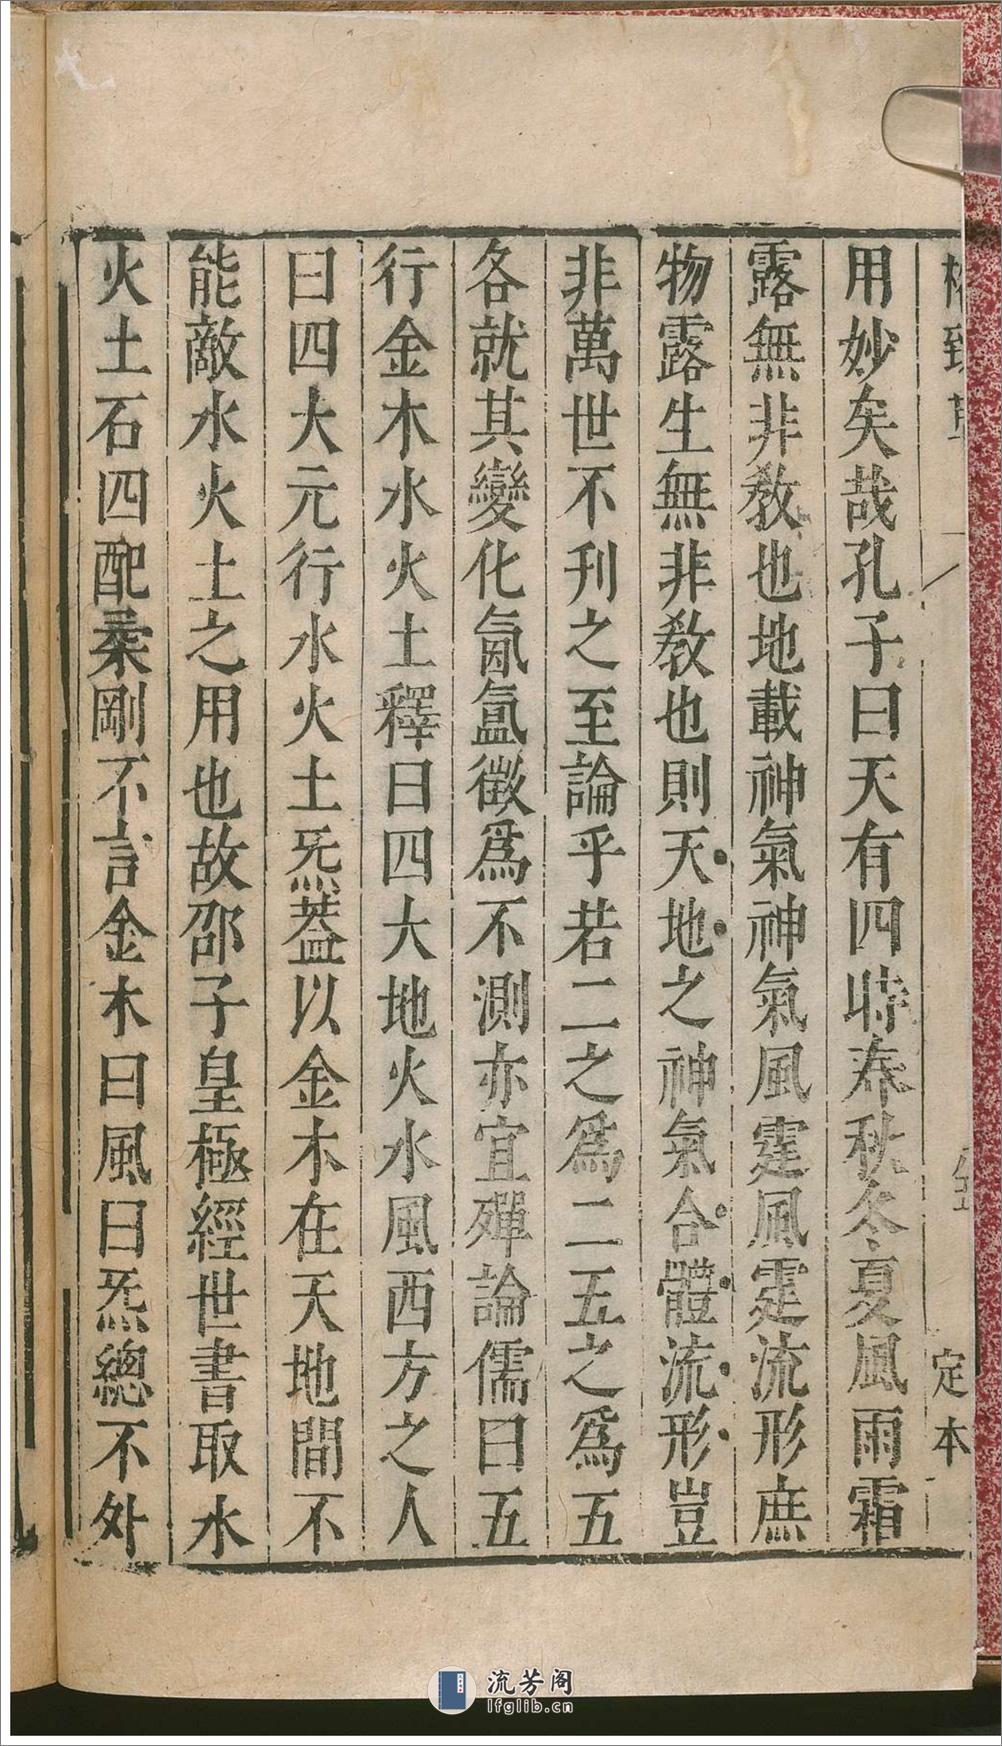 格致草
定本
用妙矣哉孔子曰天有四時春秋冬夏風雨霜
露無非教也地載神氣神氣風霆風霆流形庶
物露生無非教也則天地之神氣合體流形豈
非萬世不刊之至論乎若二之爲二五之爲五
各就其變化氤氳徵爲不測亦宜殫論儒曰五
行金木水火土釋曰四大地火水風西方之人
曰四大元行水火土炁蓋以金木在天地間不
能敵水火土之用也故邵子皇極經世書取水
火土石四配柔剛不言金木曰風曰炁總不外
流芳阁
lfglib.cn